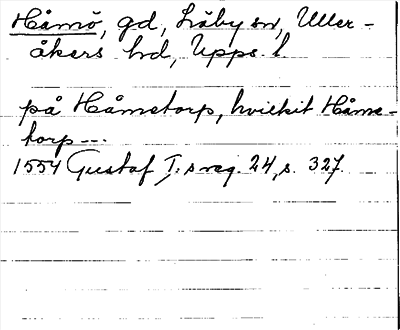 Håmö, gd, Läby sn, Uller-
åkers hd, Upps. l.
på Håmetorp, hvilkit Håme-
torp ---
1554 Gustaf I:s reg. 24, s. 327.